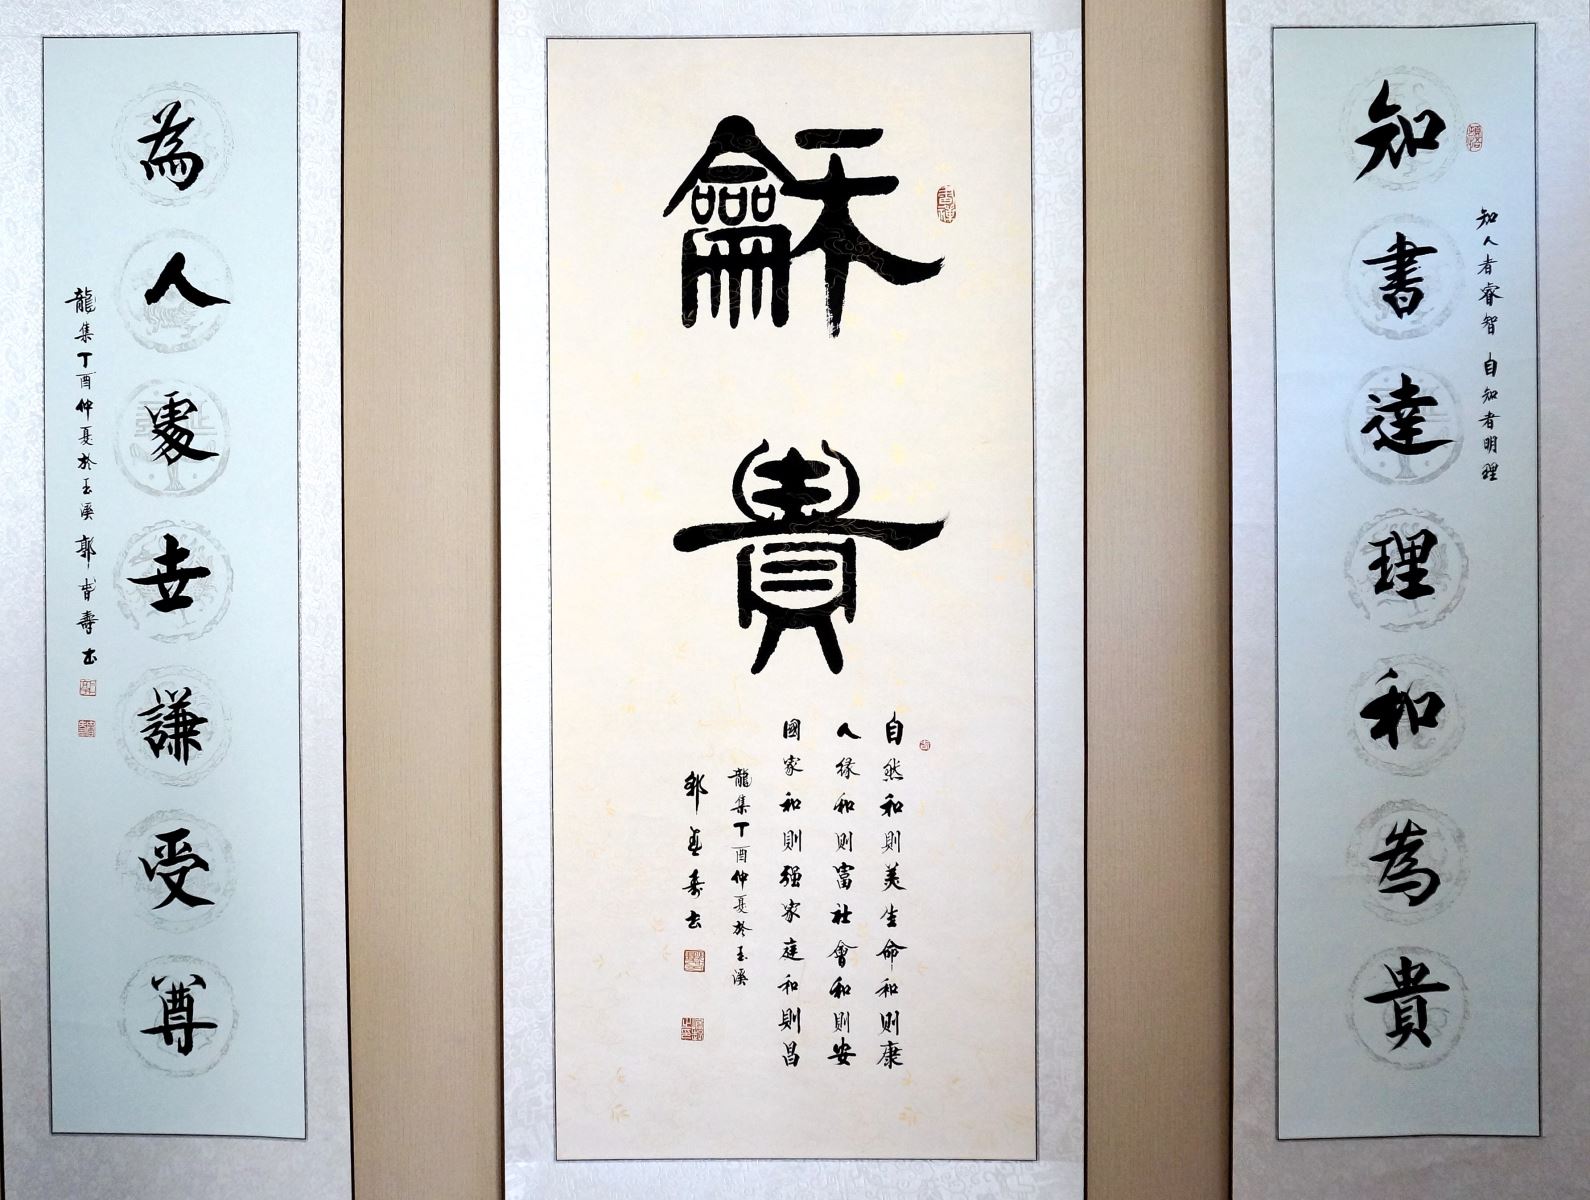 知人者睿智 自知者明理
知書達理和為貴
龢貴
自然和則美生命和則康
人緣和則富社會和則安
國家和則强家庭和則昌
龍集丁酉仲夏於玉溪
為人處世謙受尊
龍集丁酉仲夏於玉溪 郭 壽书